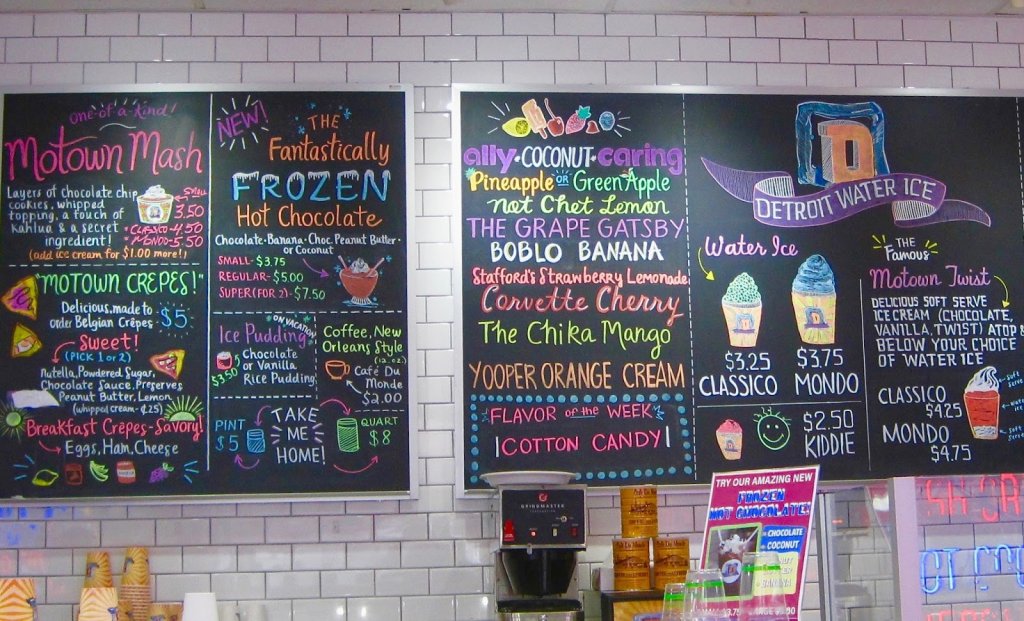 one-of-a-kind!
Motown Mash
Layers of chocolate chip
cookies, whipped
topping, a touch of
Kahlua & a secret
ingredient!
Small
3.50
Classico-4.50
Mondo-5.50
(add ice cream for $1.00 more!)
"MOTOWN CRÊPES!"
Delicious, made to
order Belgian Crêpes - $5
Sweet!
(PICK 1 or 2)
Nutella, Powdered Sugar,
Chocolate Sauce, Preserves
Peanut Butter, Lemon
(whipped cream-¢.25)
Breakfast Crêpes-Savory!
Eggs, Ham, Cheese
NEW!
THE
Fantastically
FROZEN
Hot Chocolate
Chocolate-Banana-Choc. Peanut Butter-
or Coconut
SMALL-$3.75
REGULAR-$5.00
SUPER(FOR 2)-$7.50
Ice Pudding
ON VACATION
Chocolate
or Vanilla
Rice Pudding
$3.50
Coffee, New
Orleans Style
(12.oz)
Café Du
Monde
$2.00
PINT
$5
TAKE
ME
HOME!
QUART
$8
ally·COCONUT·caring
Pineapple OR Green Apple
not Chet Lemon
THE GRAPE GATSBY
BOBLO BANANA
Stafford's Strawberry Lemonade
Corvette Cherry
The Chika Mango
YOOPER ORANGE CREAM
FLAVOR of the WEEK
COTTON CANDY
D
DETROIT WATER ICE
Water Ice
$3.25
CLASSICO
$3.75
MONDO
$2.50
KIDDIE
THE
Famous
Motown Twist
DELICIOUS SOFT SERVE
ICE CREAM (CHOCOLATE,
VANILLA, TWIST) ATOP &
BELOW YOUR CHOICE
OF WATER ICE
CLASSICO
$4.25
MONDO
$4.75
GRINDMASTER
TRY OUR AMAZING NEW
FROZEN
HOT CHOCOLATE!
CHOCOLATE
COCONUT
BANANA